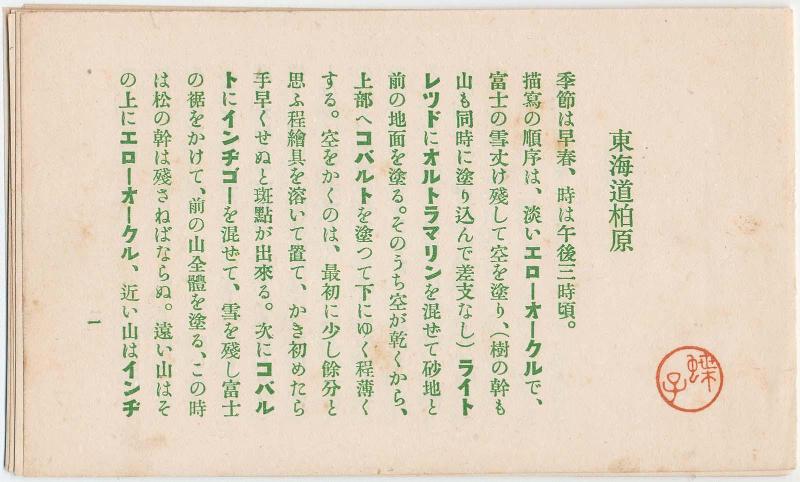 東海道柏原
季節は早春、時は午後三時頃。
描寫の順序は、淡いエローオークルで、
富士の雪丈け殘して空を塗り、(樹の幹も
山も同時に塗り込んで差支なし)ライト
レツドにオルトラマリンを混ぜて砂地と
前の地面を塗る。そのうち空が乾くから、
上部へコバルトを塗つて下にゆく程薄く
する。空をかくのは、最初に少し餘分と
思ふ程繪具を溶いて置て、かき初めたら
手早くせぬと斑點が出來る。次にコバル
トにインヂゴーを混ぜて、雪を殘し富士
の裾をかけて、前の山全體を塗る、この時
は松の幹は殘さねばならぬ。遠い山はそ
の上にエローオークル、近い山はインヂ
一